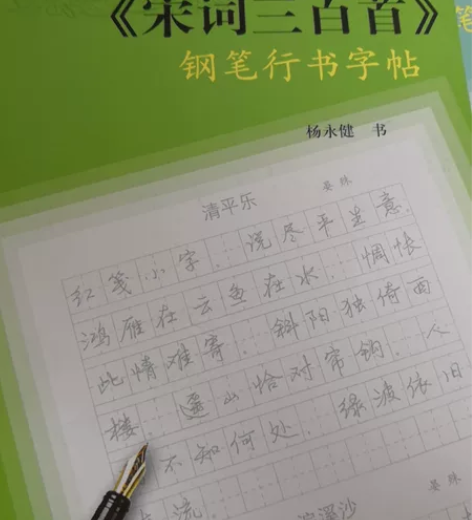 《宋词三百首》
钢笔行书字帖
杨永健 书
清平乐 晏殊
红笺小字，说尽平生意。
鸿雁在云鱼在水，惆怅
此情难寄。斜阳独倚西
楼，遥山恰对帘钩。人
不知何处，绿波依旧
流。
浣溪沙